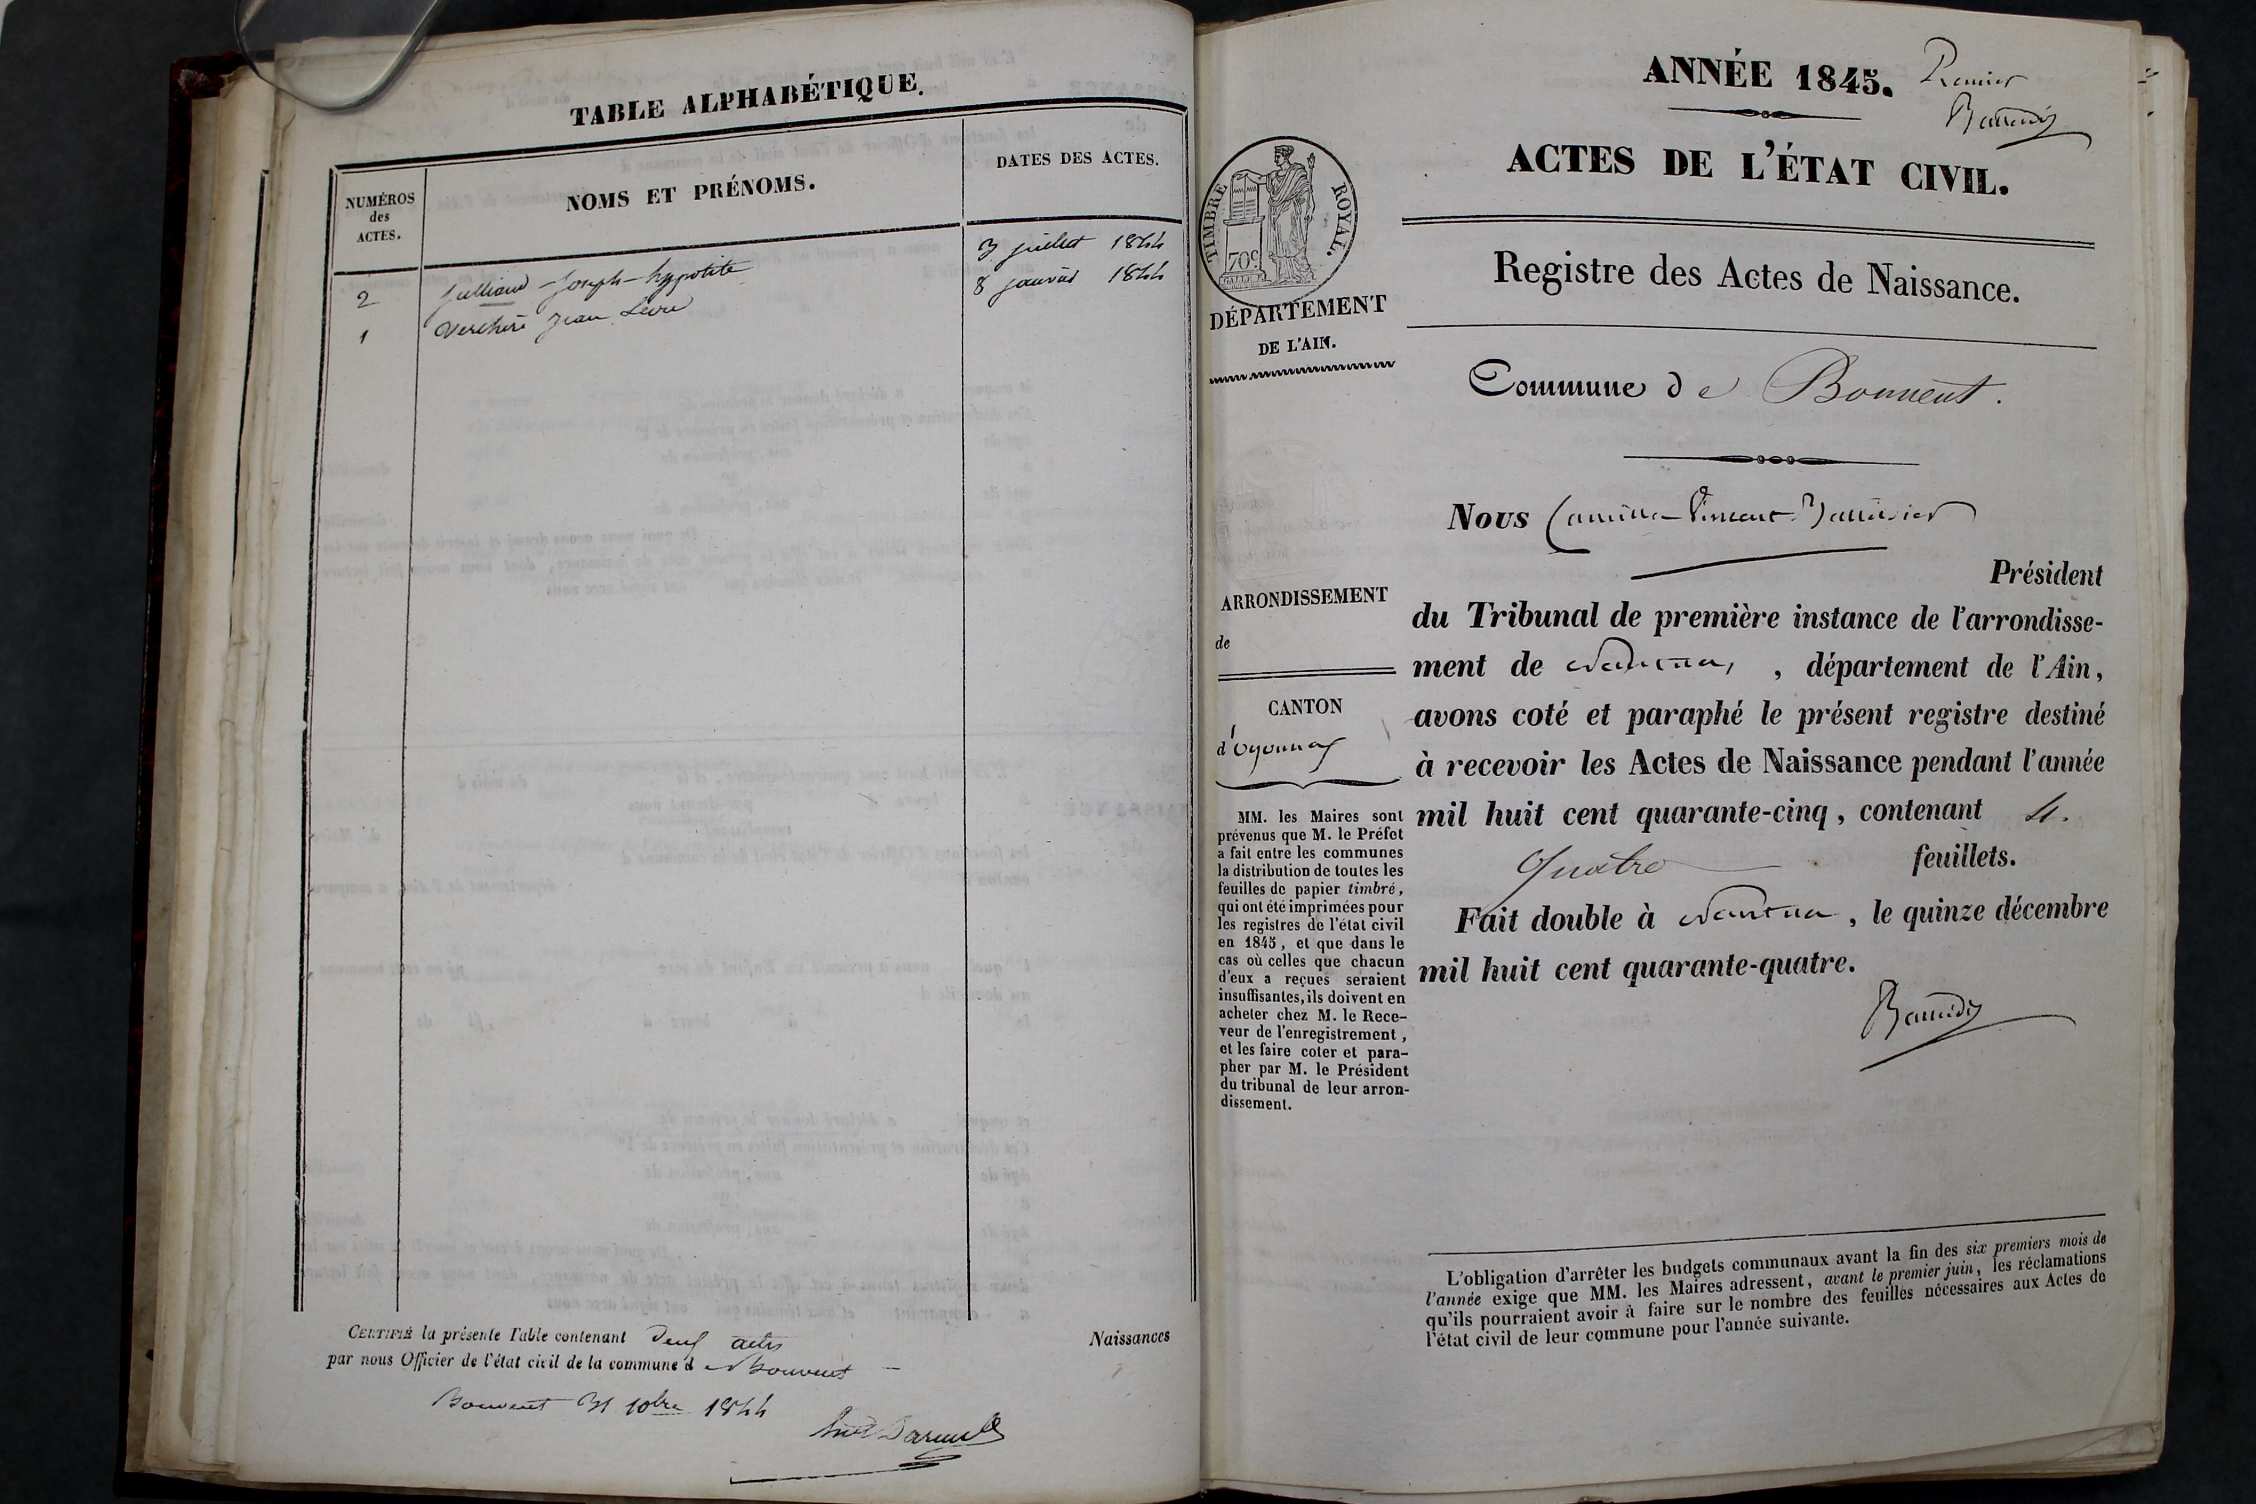 TABLE ALPHABÉTIQUE.
NUMÉROS
des
ACTES.
NOMS ET PRÉNOMS.
DATES DES ACTES.
2 Julliard Joseph hyppolite 3 juillet 1844
1 Verchère Jean 8 janvier 1844
CERTIFIÉ la présente Table contenant deux actes Naissances
par nous Officier de l'état civil de la commune d e Bouvent
Bouvent 31 10bre 1844
ANNÉE 1845.
Premier
ACTES DE L'ÉTAT CIVIL.
TIMBRE ROYAL.
70c
DÉPARTEMENT
DE L'AIN.
Registre des Actes de Naissance.
Commune d e Bouvent.
Nous Camille Vincent
Président
ARRONDISSEMENT
de
CANTON
d'Oyonnax
du Tribunal de première instance de l'arrondisse-
ment de Nantua, , département de l'Ain,
avons coté et paraphé le présent registre destiné
à recevoir les Actes de Naissance pendant l'année
mil huit cent quarante-cinq, contenant 4.
Quatre feuillets.
Fait double à Nantua, le quinze décembre
mil huit cent quarante-quatre.
MM. les Maires sont
prévenus que M. le Préfet
a fait entre les communes
la distribution de toutes les
feuilles de papier timbré,
qui ont été imprimées pour
les registres de l'état civil
en 1845, et que dans le
cas où celles que chacun
d'eux a reçues seraient
insuffisantes, ils doivent en
acheter chez M. le Rece-
veur de l'enregistrement,
et les faire coter et para-
pher par M. le Président
du tribunal de leur arron-
dissement.
L'obligation d'arrêter les budgets communaux avant la fin des six premiers mois de
l'année exige que MM. les Maires adressent, avant le premier juin, les réclamations
qu'ils pourraient avoir à faire sur le nombre des feuilles nécessaires aux Actes de
l'état civil de leur commune pour l'année suivante.